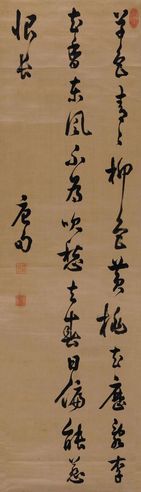 草色青々柳色黄桃花歷亂李
花香東風不為吹愁去春日偏能惹
恨長